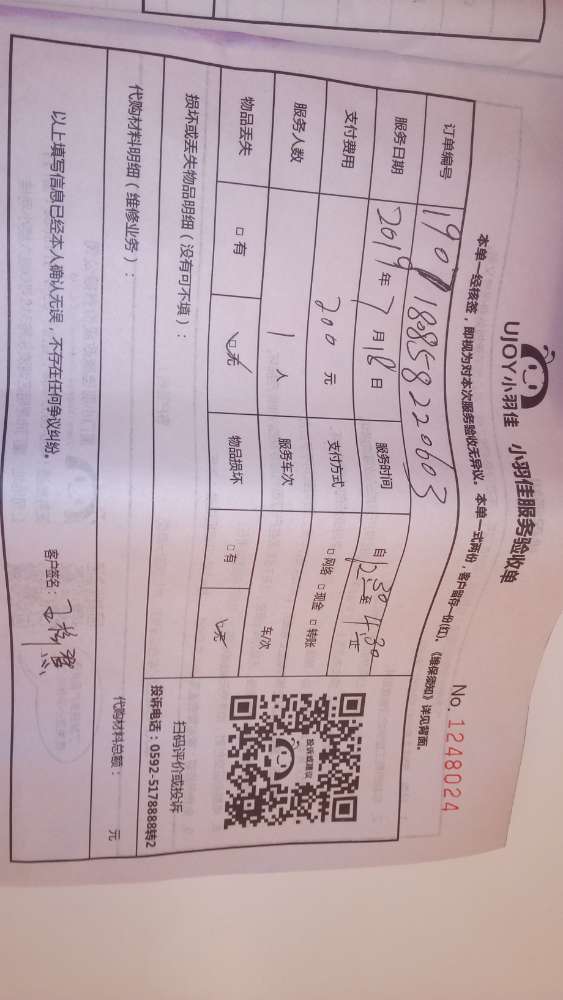 UJOY小羽佳 小羽佳服务验收单
No. 1248024
本单一经核签，即视为对本次服务验收无异议。本单一式两份，客户留存一份(红)，《维保须知》详见背面。
订单编号
服务日期 2019年7月18日 服务时间 自 至 4:30 止
支付费用 200元 支付方式 □网络 □现金 □转账
服务人数 1人 服务车次 车/次
物品丢失 □有 □无 物品损坏 □有 □无
投诉或建议
扫码评价或投诉
投诉电话：0592-5178888转2
损坏或丢失物品明细（没有可不填）：
代购材料明细（维修业务）： 代购材料总额： 元
以上填写信息已经本人确认无误，不存在任何争议纠纷。 客户签名：